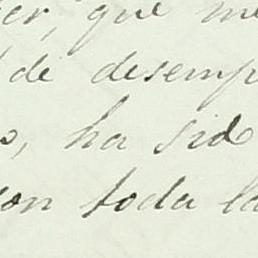 er, que me
de desemp
o, ha sido
con toda la